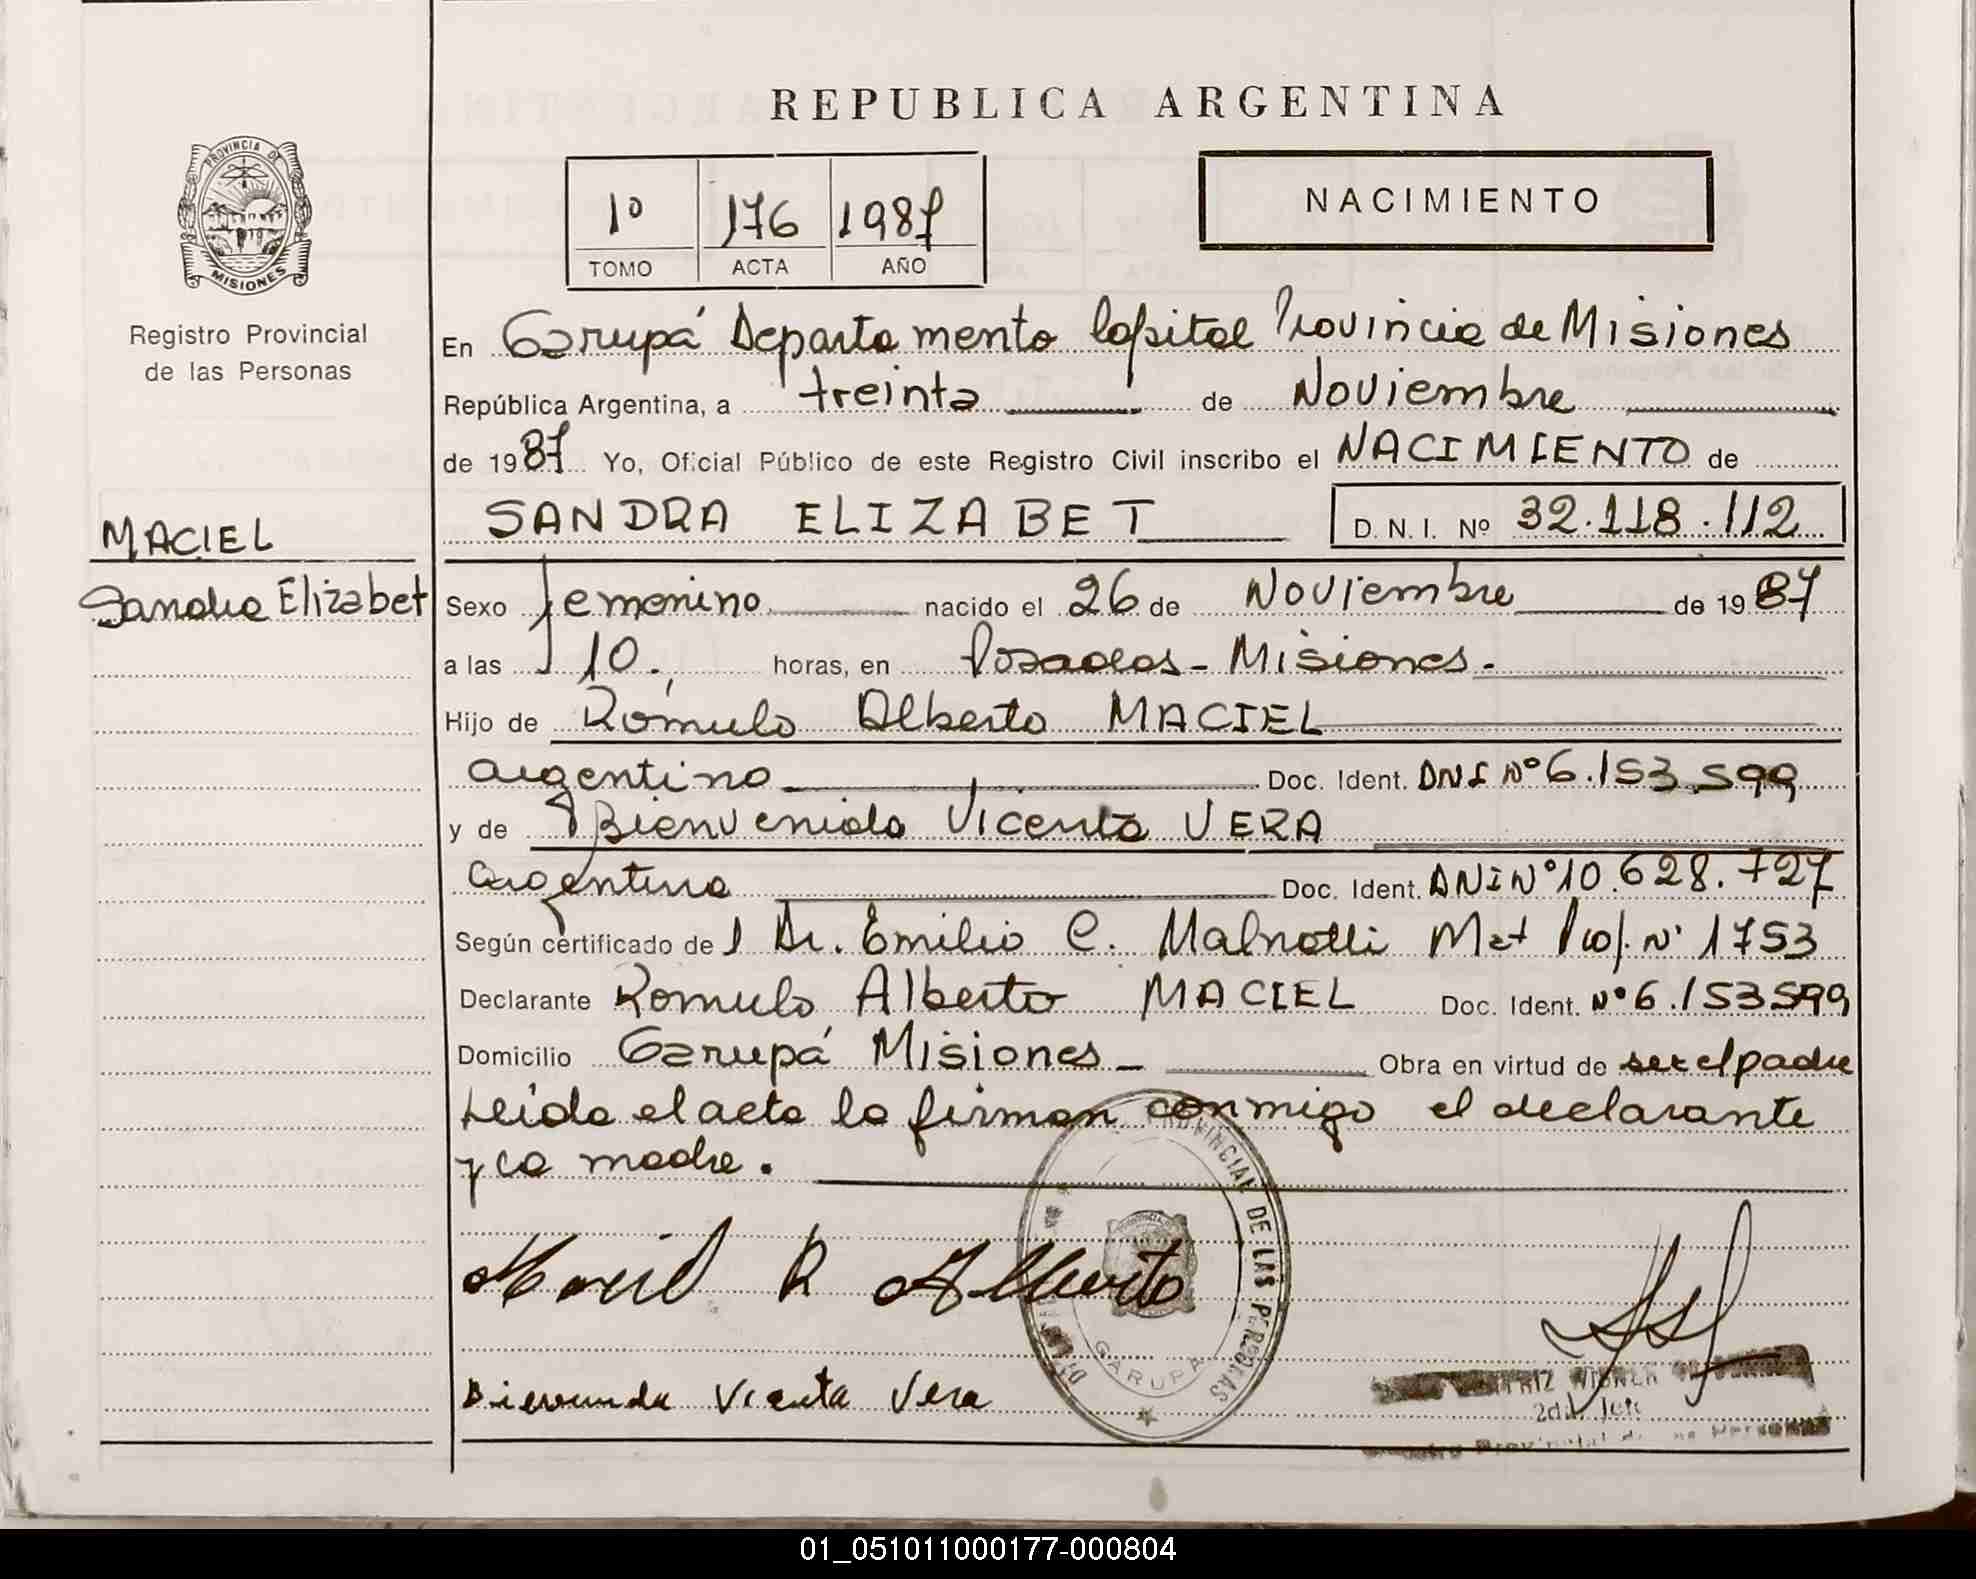 REPUBLICA ARGENTINA
PROVINCIA DE
MISIONES
Registro Provincial
de las Personas
1º 176 1987
TOMO ACTA AÑO
NACIMIENTO
En Garupá Departamento Capital Provincia de Misiones
República Argentina, a treinta de Noviembre
de 1987 Yo, Oficial Público de este Registro Civil inscribo el NACIMIENTO de
MACIEL
SANDRA ELIZABET D. N. I. Nº 32.118.112
Sandra Elizabet
Sexo femenino nacido el 26 de Noviembre de 1987
a las 10. horas, en Posadas - Misiones.
Hijo de Rómulo Alberto MACIEL
argentino Doc. Ident. DNI Nº 6.153.599
y de Bienvenida Vicenta VERA
argentina Doc. Ident. DNI Nº 10.628.727
Según certificado de l Dr. Emilio C. Malnatti Mat Prof. Nº 1753
Declarante Romulo Alberto MACIEL Doc. Ident. Nº 6.153599
Domicilio Garupá Misiones - Obra en virtud de ser el padre
Leída el acta la firman conmigo el declarante
y la madre.
Maciel R Alberto
Bienvenida Vicenta Vera
PROVINCIAL DE LAS PERSONAS
GARUPA
2da. Jefe
Provincial de las Personas
01_051011000177-000804